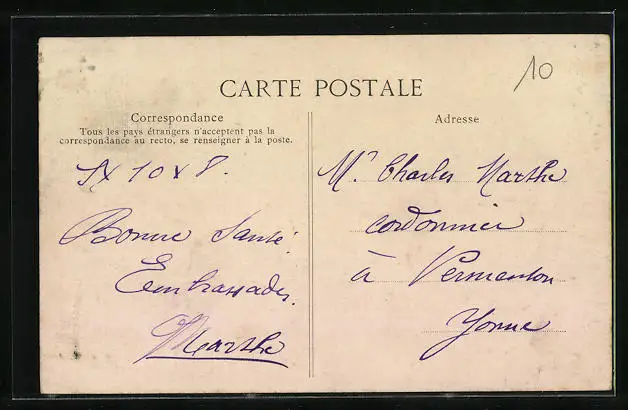 10
CARTE POSTALE
Correspondance
Tous les pays étrangers n'acceptent pas la
correspondance au recto, se renseigner à la poste.
Adresse
10 x 8.
Bonne Santé.
Embrassades.
Marthe
Mr Charles Marthe
cordonnier
à Vermenton
Yonne